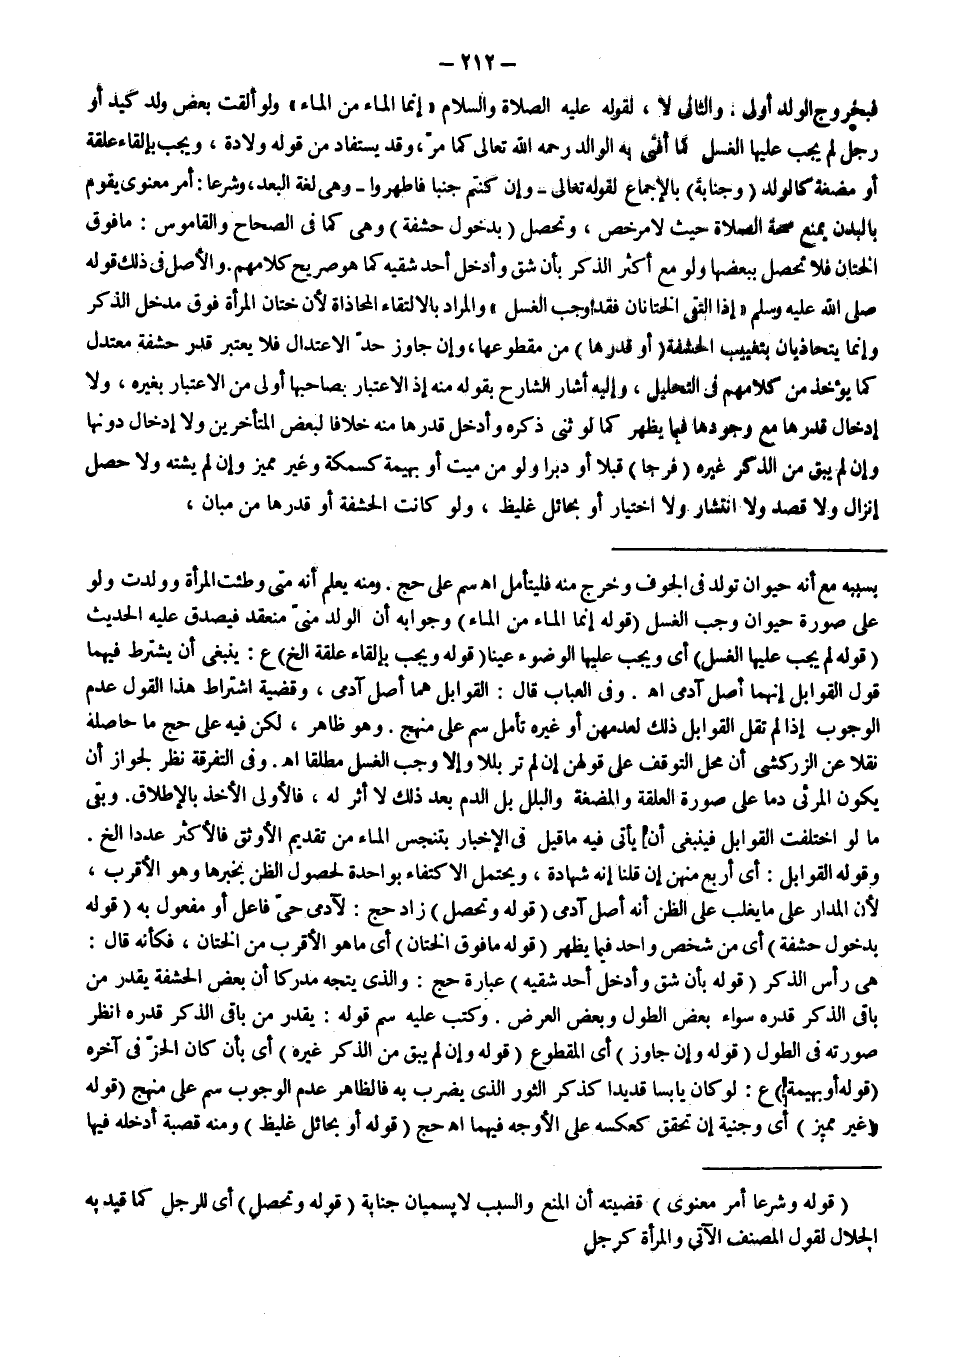 — ٢١٢ —
فبخروج الولد أولى ، والثانى لا ، لقوله عليه الصلاة والسلام « إنما الماء من الماء » ولو ألقت بعض ولد كيد أو
رجل لم يجب عليها الغسل كما أفتى به الوالد رحمه الله تعالى كما مرّ ، وقد يستفاد من قوله ولادة ، ويجب بإلقاء علقة
أو مضغة كالولد ( وجنابة ) بالإجماع لقوله تعالى ـ وإن كنتم جنبا فاطهروا ـ وهى لغة البعد ، وشرعا : أمر معنوى يقوم
بالبدن يمنع صحة الصلاة حيث لا مرخص ، وتحصل ( بدخول حشفة ) وهى كما فى الصحاح والقاموس : ما فوق
الختان فلا تحصل ببعضها ولو مع أكثر الذكر بأن شق وأدخل أحد شقيه كما هو صريح كلامهم . والأصل فى ذلك قوله
صلى الله عليه وسلم « إذا التقى الختانان فقد أوجب الغسل » والمراد بالالتقاء المحاذاة لأن ختان المرأة فوق مدخل الذكر
وإنما يتحاذيان بتغييب الحشفة ( أو قدرها ) من مقطوعها ، وإن جاوز حدّ الاعتدال فلا يعتبر قدر حشفة معتدل
كما يؤخذ من كلامهم فى التحليل ، وإليه أشار الشارح بقوله منه إذ الاعتبار بصاحبها أولى من الاعتبار بغيره ، ولا
إدخال قدرها مع وجودها فيما يظهر كما لو ثنى ذكره وأدخل قدرها منه خلافا لبعض المتأخرين ولا إدخال دونها
وإن لم يبق من الذكر غيره ( فرجا ) قبلا أو دبرا ولو من ميت أو بهيمة كسمكة وغير مميز وإن لم يشته ولا حصل
إنزال ولا قصد ولا انتشار ولا اختيار أو بحائل غليظ ، ولو كانت الحشفة أو قدرها من مبان ،
بسببه مع أنه حيوان تولد فى الجوف وخرج منه فليتأمل اهـ سم على حج . ومنه يعلم أنه متى وطئت المرأة وولدت ولو
على صورة حيوان وجب الغسل ( قوله إنما الماء من الماء ) وجوابه أن الولد منىّ منعقد فيصدق عليه الحديث
( قوله لم يجب عليها الغسل ) أى ويجب عليها الوضوء عينا ( قوله ويجب بإلقاء علقة الخ ) ع : ينبغى أن يشترط فيهما
قول القوابل إنهما أصل آدمى اهـ . وفى العباب قال : القوابل هما أصل آدمى ، وقضية اشتراط هذا القول عدم
الوجوب إذا لم تقل القوابل ذلك لعدمهن أو غيره تأمل سم على منهج . وهو ظاهر ، لكن فيه على حج ما حاصله
نقلا عن الزركشى أن محل التوقف على قولهن إن لم تر بللا وإلا وجب الغسل مطلقا اهـ . وفى التفرقة نظر لجواز أن
يكون المرئى دما على صورة العلقة والمضغة والبلل بل الدم بعد ذلك لا أثر له ، فالأولى الأخذ بالإطلاق . وبقى
ما لو اختلفت القوابل فينبغى أن يأتى فيه ما قيل فى الإخبار بتنجس الماء من تقديم الأوثق فالأكثر عددا الخ .
وقوله القوابل : أى أربع منهن إن قلنا إنه شهادة ، ويحتمل الاكتفاء بواحدة لحصول الظن بخبرها وهو الأقرب ،
لأن المدار على ما يغلب على الظن أنه أصل آدمى ( قوله وتحصل ) زاد حج : لآدمى حىّ فاعل أو مفعول به ( قوله
بدخول حشفة ) أى من شخص واحد فيما يظهر ( قوله ما فوق الختان ) أى ما هو الأقرب من الختان ، فكأنه قال :
هى رأس الذكر ( قوله بأن شق وأدخل أحد شقيه ) عبارة حج : والذى يتجه مدركا أن بعض الحشفة يقدر من
باقى الذكر قدره سواء بعض الطول وبعض العرض . وكتب عليه سم قوله : يقدر من باقى الذكر قدره انظر
صورته فى الطول ( قوله وإن جاوز ) أى المقطوع ( قوله وإن لم يبق من الذكر غيره ) أى بأن كان الحزّ فى آخره
( قوله أو بهيمة ) ع : لو كان يابسا قديدا كذكر الثور الذى يضرب به فالظاهر عدم الوجوب سم على منهج ( قوله
وغير مميز ) أى وجنية إن تحقق كعكسه على الأوجه فيهما اهـ حج ( قوله أو بحائل غليظ ) ومنه قصبة أدخله فيها
( قوله وشرعا أمر معنوى ) قضيته أن المنع والسبب لا يسميان جنابة ( قوله وتحصل ) أى للرجل كما قيد به
الجلال لقول المصنف الآتى والمرأة كرجل